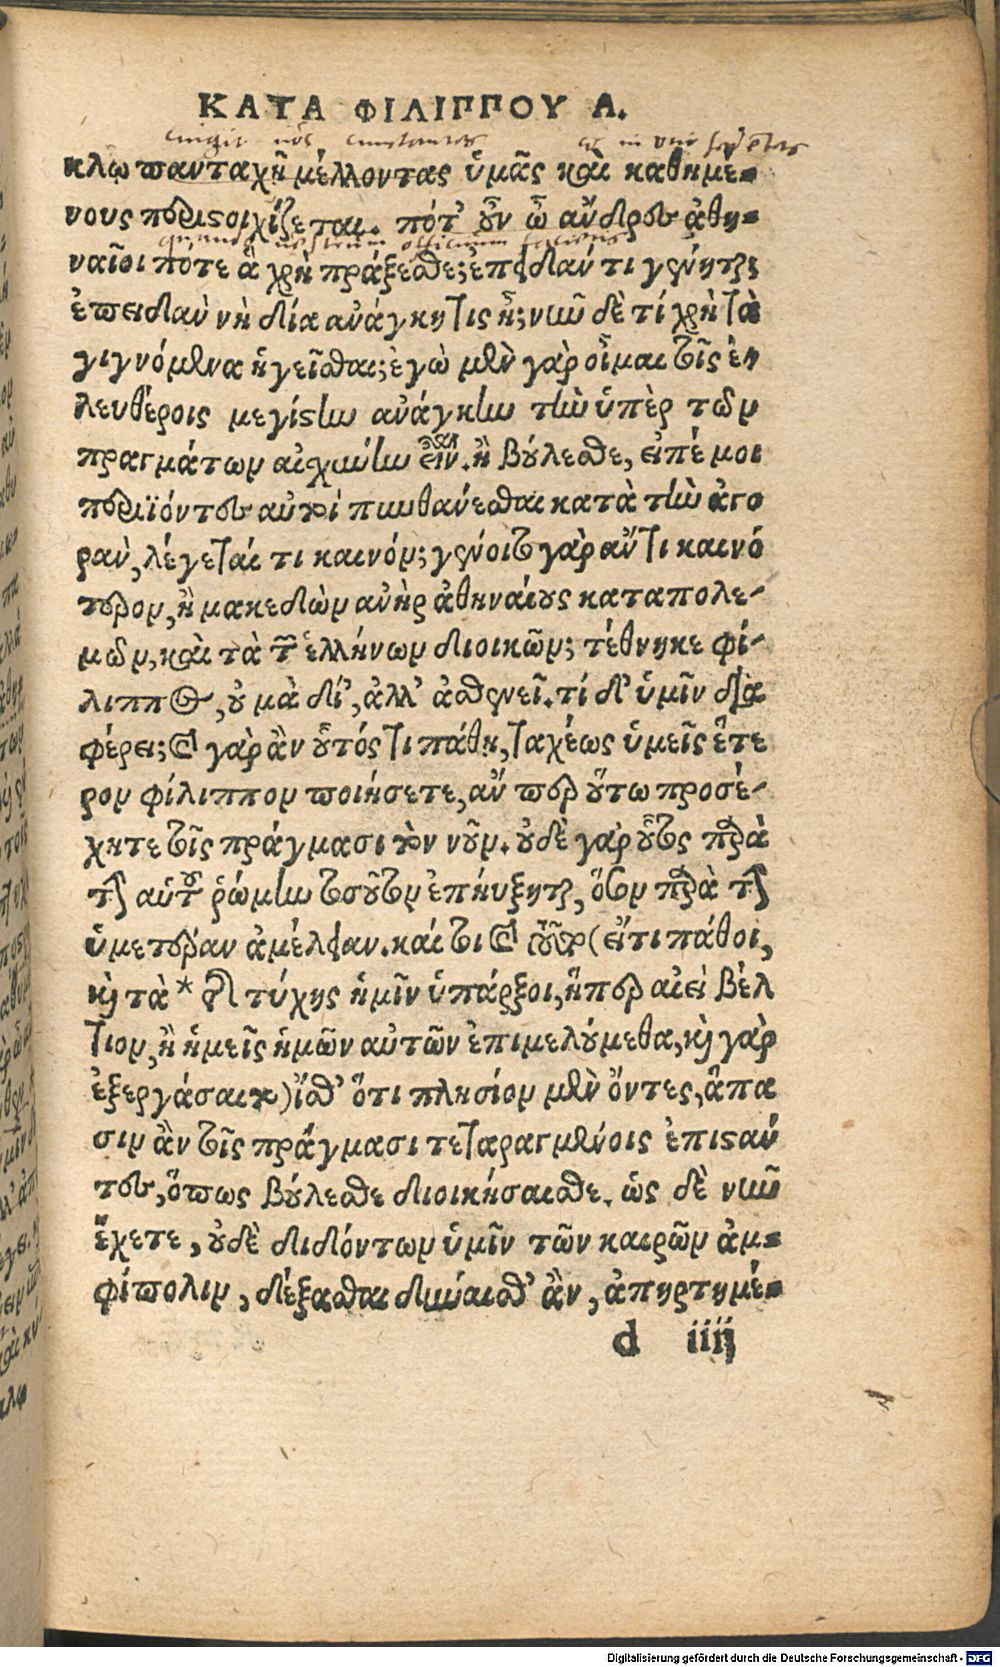 ΚΑΤΑ ΦΙΛΙΠΠΟΥ Α.
κλῳ πανταχῆ μέλλοντας ὑμᾶς καὶ καθημέ-
νους περιστοιχίζεται. πότ' οὖν ὦ ἄνδρες ἀθη-
ναῖοι ποτε ἃ χρὴ πράξεσθε; ἐπειδάν τι γένηται;
ἐπειδὰν νὴ δία ἀνάγκη τις ᾖ; νῦν δὲ τί χρὴ τὰ
γιγνόμενα ἡγεῖσθαι; ἐγὼ μὲν γὰρ οἶμαι τοῖς ἐ
λευθέροις μεγίστην ἀνάγκην τὴν ὑπὲρ τῶν
πραγμάτων αἰσχύνην εἶναι. ἢ βούλεσθε, εἰπέ μοι
περιϊόντες αὐτοὶ πυνθάνεσθαι κατὰ τὴν ἀγο
ρὰν, λέγεταί τι καινόν; γένοιτο γὰρ ἄν τι καινό
τερον, ἢ μακεδὼν ἀνὴρ ἀθηναίους καταπολε-
μῶν, καὶ τὰ τῶν ἑλλήνων διοικῶν; τέθνηκε φί-
λιππος, οὐ μὰ δί', ἀλλ' ἀσθενεῖ. τί δ' ὑμῖν δια
φέρει; καὶ γὰρ ἂν οὗτός τι πάθη, ταχέως ὑμεῖς ἕτε
ρον φίλιππον ποιήσετε, ἄν περ οὕτω προσέ-
χητε τοῖς πράγμασι τὸν νοῦν. οὐδὲ γὰρ οὗτος παρὰ
τὴν αὑτοῦ ῥώμην τοσοῦτον ἐπηύξηται, ὅσον παρὰ τὴν
ὑμετέραν ἀμέλειαν. καίτοι καὶ τοῦτο (εἴ τι πάθοι,
καὶ τὰ * τῆς τύχης ἡμῖν ὑπάρξοι, ἥπερ αἰεὶ βέλ
τιον, ἢ ἡμεῖς ἡμῶν αὐτῶν ἐπιμελούμεθα, καὶ γὰρ
ἐξεργάσαιτο) ἴσθ' ὅτι πλησίον μὲν ὄντες, ἅπα
σιν ἂν τοῖς πράγμασι τεταραγμένοις ἐπιστάν
τες, ὅπως βούλεσθε διοικήσαισθε. ὡς δὲ νῦν
ἔχετε, οὐδὲ διδόντων ὑμῖν τῶν καιρῶν ἀμ-
φίπολιν, δέξασθαι δύναισθ' ἂν, ἀπηρτημέ-
d iiij
Digitalisierung gefördert durch die Deutsche Forschungsgemeinschaft - DFG